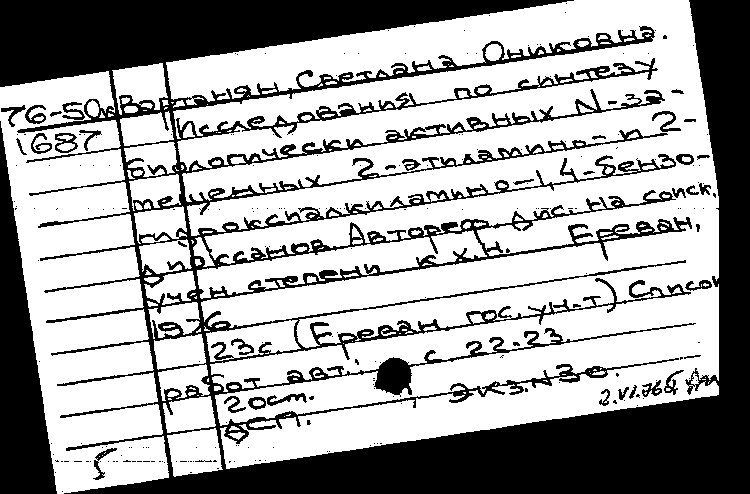 76-50к Вартанян, Светлана Ониковна.
1687 Исследования по синтезу
биологически активных N-за-
мещенных 2-этиламино- и 2-
гидроксиалкиламино-1,4-бензо-
диоксанов. Автореф. дис. на соиск.
учен. степени к.х.н. Ереван,
1976.
23с. (Ереван. гос. ун-т) Список
работ авт.: с. 22-23.
20ст. ЭКЗ.N30.
ДСП. 2.VI.76